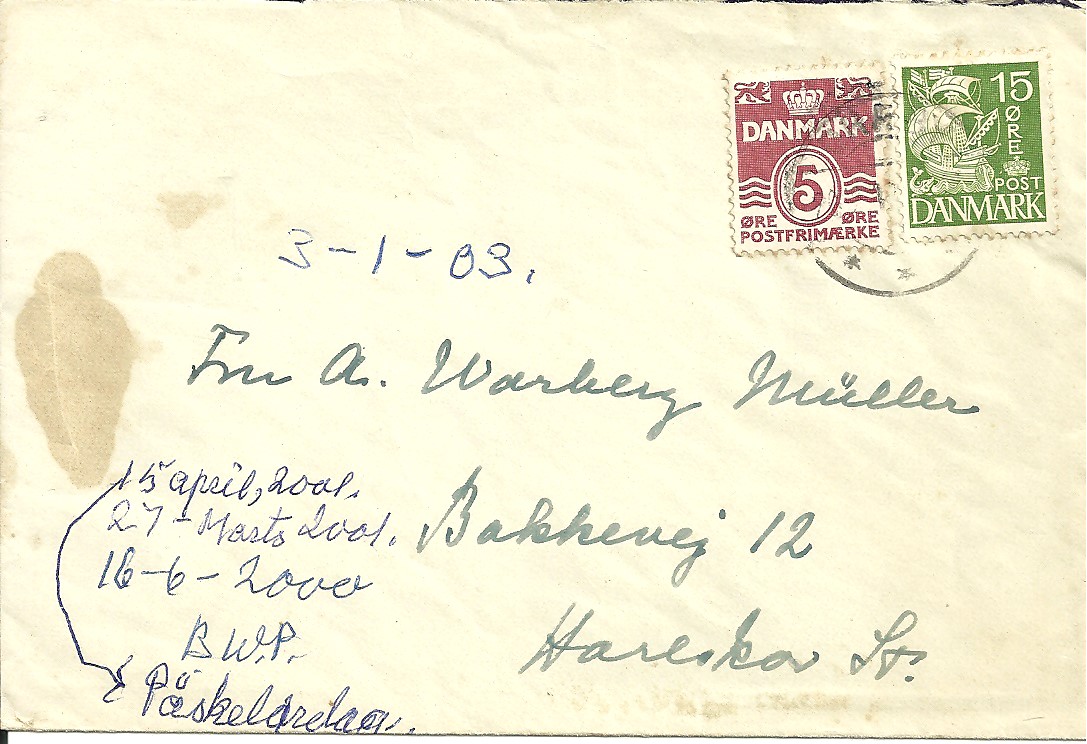 DANMARK
5
ØRE ØRE
POSTFRIMÆRKE
15
ØRE
POST
DANMARK
3-1-03.
Fru A. Warberg Müller
Bakkevej 12
Hareskov St.
15 april, 2001.
27-Marts 2001.
16-6-2000
B.W.P.
Påskelørdag.